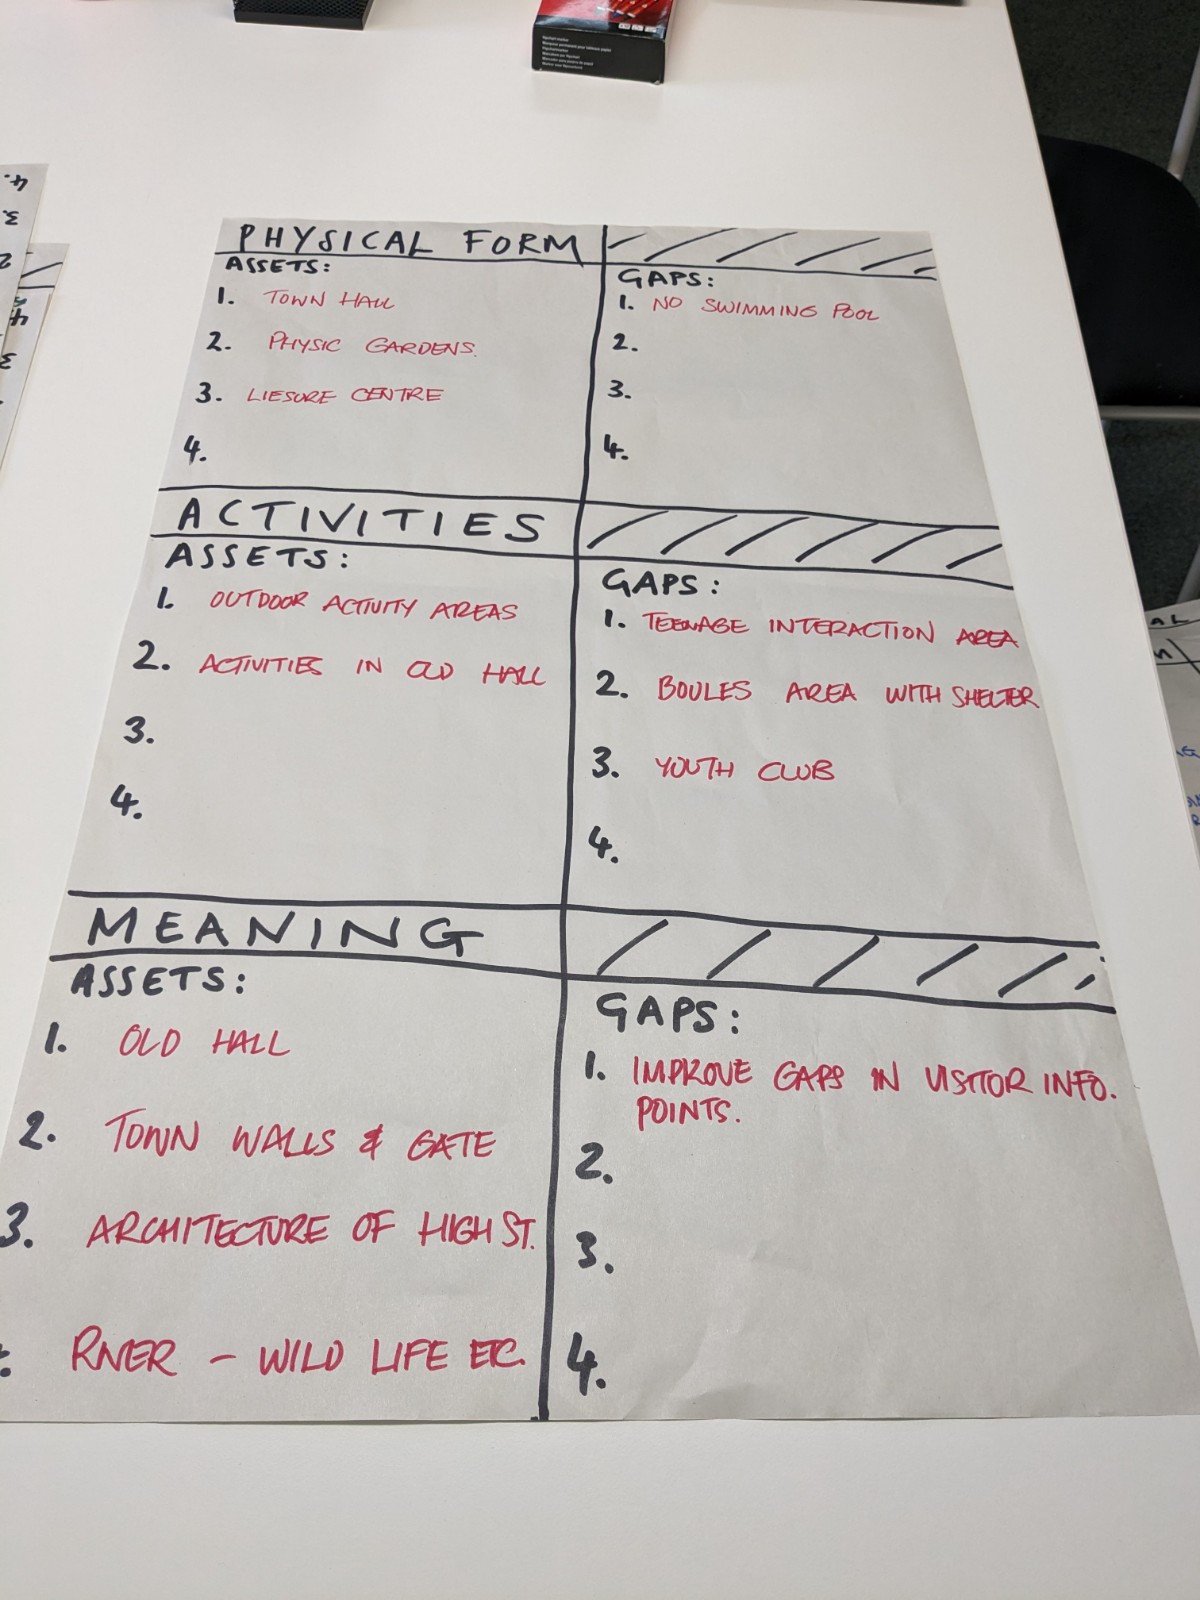 PHYSICAL FORM
ASSETS:
1. TOWN HALL
2. PHYSIC GARDENS.
3. LIESURE CENTRE
4.
GAPS:
1. NO SWIMMING POOL
2.
3.
4.
ACTIVITIES
ASSETS:
1. OUTDOOR ACTIVITY AREAS
2. ACTIVITIES IN OLD HALL
3.
4.
GAPS:
1. TEENAGE INTERACTION AREA
2. BOULES AREA WITH SHELTER
3. YOUTH CLUB
4.
MEANING
ASSETS:
1. OLD HALL
2. TOWN WALLS & GATE
3. ARCHITECTURE OF HIGH ST.
RIVER – WILD LIFE ETC.
GAPS:
1. IMPROVE GAPS IN VISITOR INFO.
POINTS.
2.
3.
4.